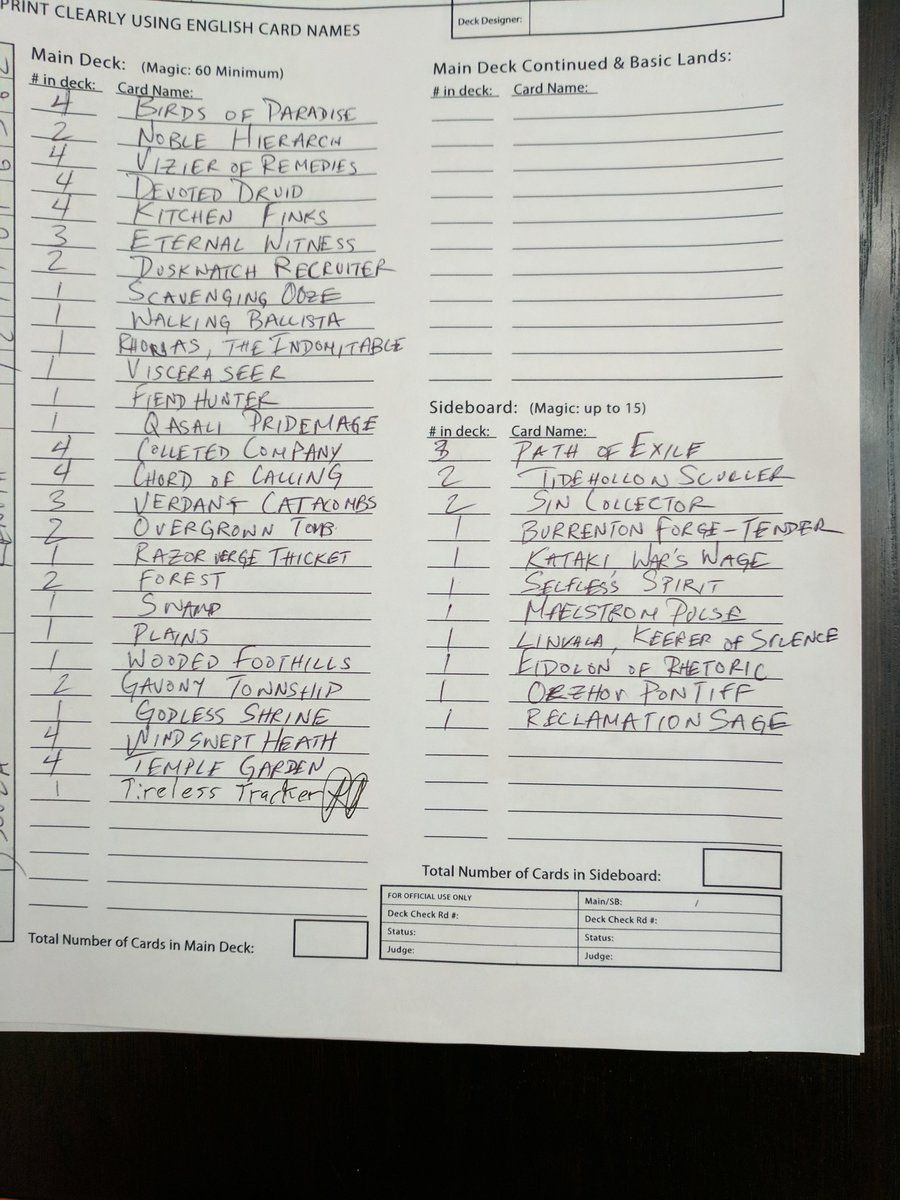 PRINT CLEARLY USING ENGLISH CARD NAMES
Deck Designer:
Main Deck: (Magic: 60 Minimum)
# in deck: Card Name:
4 BIRDS OF PARADISE
2 NOBLE HIERARCH
4 VIZIER OF REMEDIES
4 DEVOTED DRUID
4 KITCHEN FINKS
3 ETERNAL WITNESS
2 DUSKWATCH RECRUITER
1 SCAVENGING OOZE
1 WALKING BALLISTA
1 RHONAS, THE INDOMITABLE
1 VISCERA SEER
1 FIEND HUNTER
1 QASALI PRIDEMAGE
4 COLLETED COMPANY
4 CHORD OF CALLING
3 VERDANT CATACOMBS
2 OVERGROWN TOMB
1 RAZOR VERGE THICKET
2 FOREST
1 SWAMP
1 PLAINS
1 WOODED FOOTHILLS
2 GAVONY TOWNSHIP
1 GODLESS SHRINE
4 WINDSWEPT HEATH
4 TEMPLE GARDEN
1 Tireless Tracker
Total Number of Cards in Main Deck:
Main Deck Continued & Basic Lands:
# in deck: Card Name:
Sideboard: (Magic: up to 15)
# in deck: Card Name:
3 PATH OF EXILE
2 TIDEHOLLOW SCULLER
2 SIN COLLECTOR
1 BURRENTON FORGE-TENDER
1 KATAKI, WAR'S WAGE
1 SELFLESS SPIRIT
1 MAELSTROM PULSE
1 LINVALA, KEEPER OF SILENCE
1 EIDOLON OF RHETORIC
1 ORZHOV PONTIFF
1 RECLAMATION SAGE
Total Number of Cards in Sideboard:
FOR OFFICIAL USE ONLY
Main/SB: /
Deck Check Rd #:
Deck Check Rd #:
Status:
Status:
Judge:
Judge: